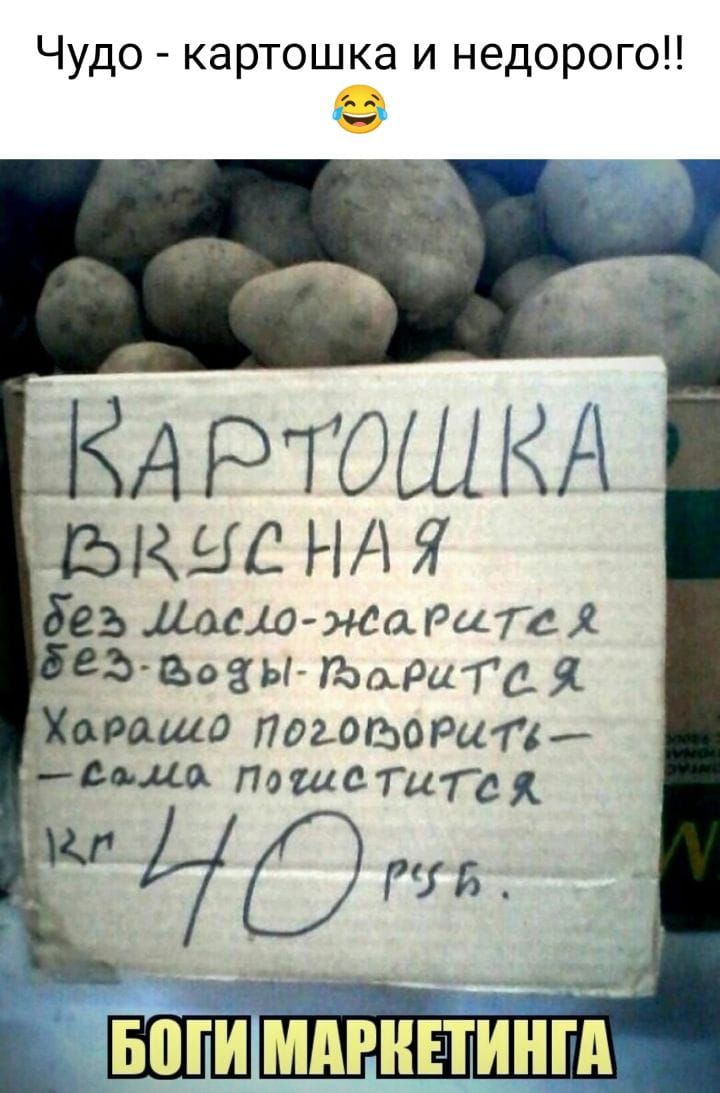 Чудо - картошка и недорого!!
😂
КАРТОШКА
ВКУСНАЯ
без Масло-жарится
без-воды-варится
Харашо поговорить-
-сама почистится
кг 40 руб.
БОГИ МАРКЕТИНГА